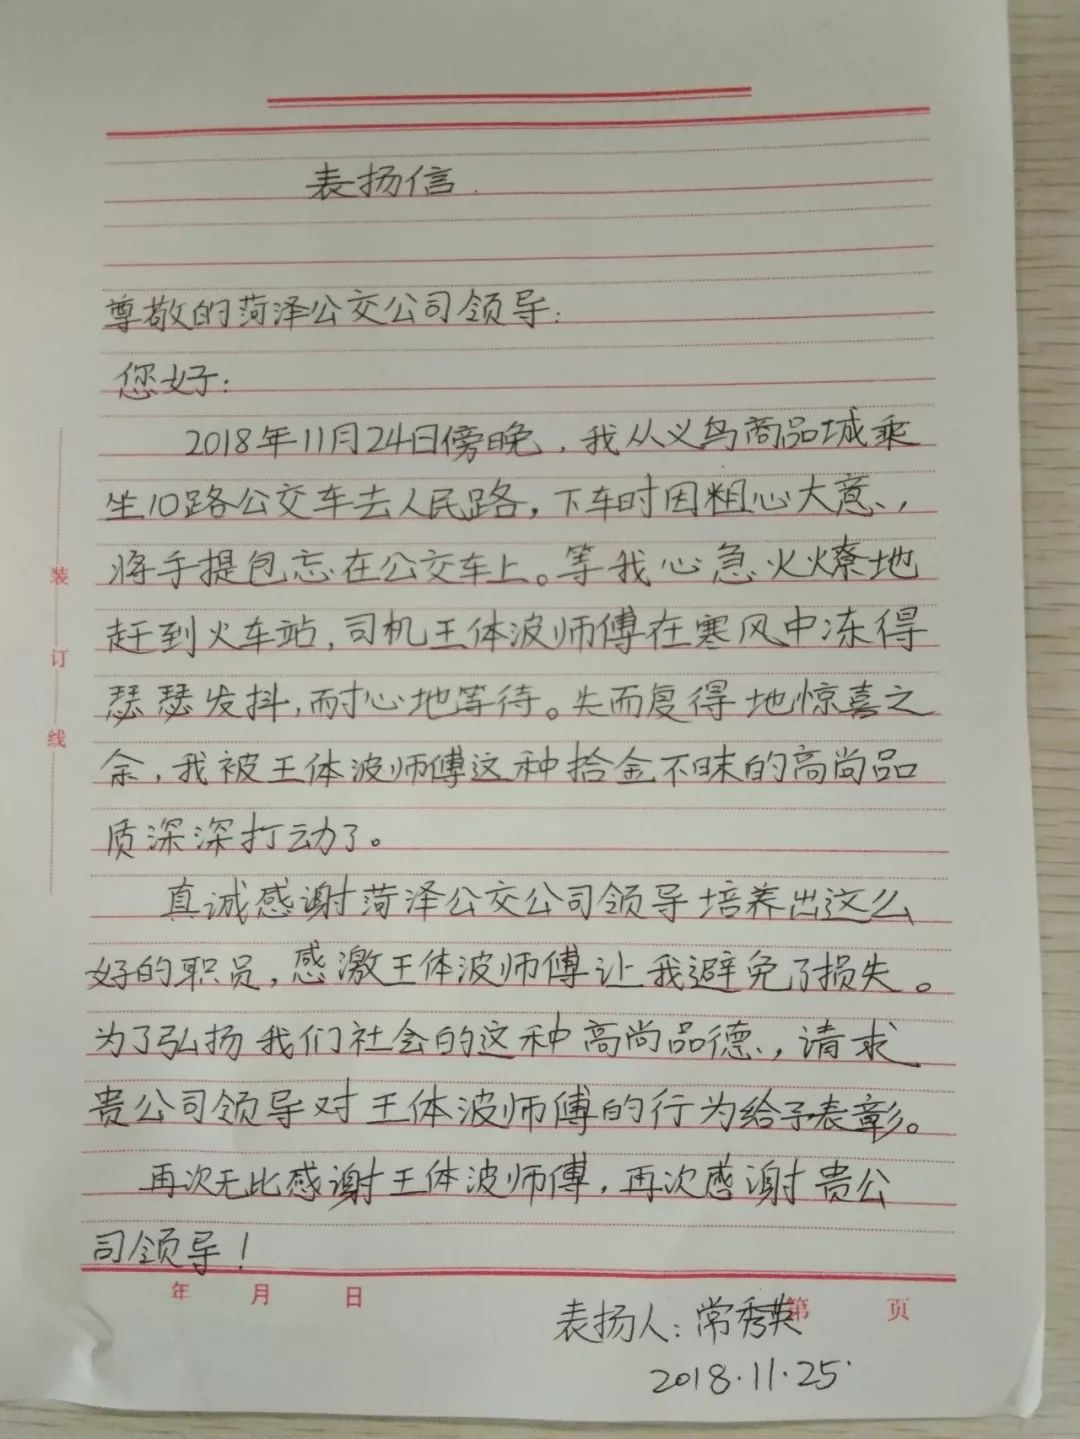 表扬信.
尊敬的菏泽公交公司领导:
您好:
2018年11月24日傍晚,我从义乌商品城乘
坐10路公交车去人民路,下车时因粗心大意,
将手提包忘在公交车上。等我心急火燎地
赶到火车站,司机王体波师傅在寒风中冻得
瑟瑟发抖,耐心地等待。失而复得地惊喜之
余,我被王体波师傅这种拾金不昧的高尚品
质深深打动了。
真诚感谢菏泽公交公司领导培养出这么
好的职员,感激王体波师傅让我避免了损失。
为了弘扬我们社会的这种高尚品德,请求
贵公司领导对王体波师傅的行为给予表彰。
再次无比感谢王体波师傅,再次感谢贵公
司领导!
年 月 日 第 页
表扬人:常秀英
2018.11.25.
装订线